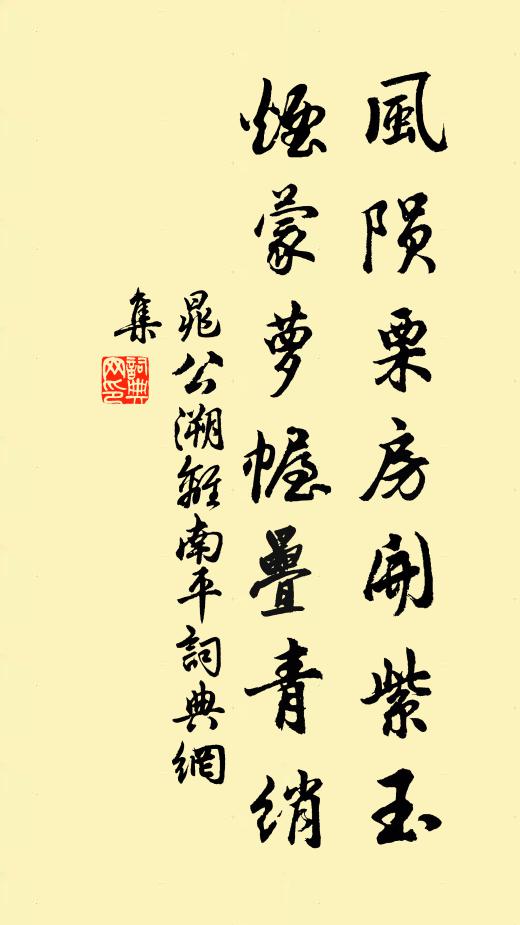 風隕栗房開紫玉
煙蒙蘿幄疊青綃
晁公溯離南平詞典網
集
詞典
网印